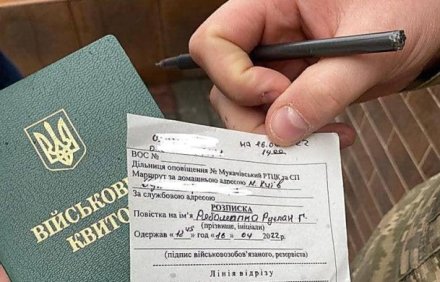 ВІЙСЬКОВ
КВИТО
на 16.0 22
14 00
ВОС №
Дільниця оповіщення № Мукачівський РТЦК та СП
Маршрут за домашньою адресою м. Київ
За службовою адресою
РОЗПИСКА
Повістка на ім'я Руслан Г.
(прізвище, ініціали)
Одержав «13 45» год «16» 04 2022 р.
(підпис військовозобов'язаного, резервіста)
Лінія відрізу